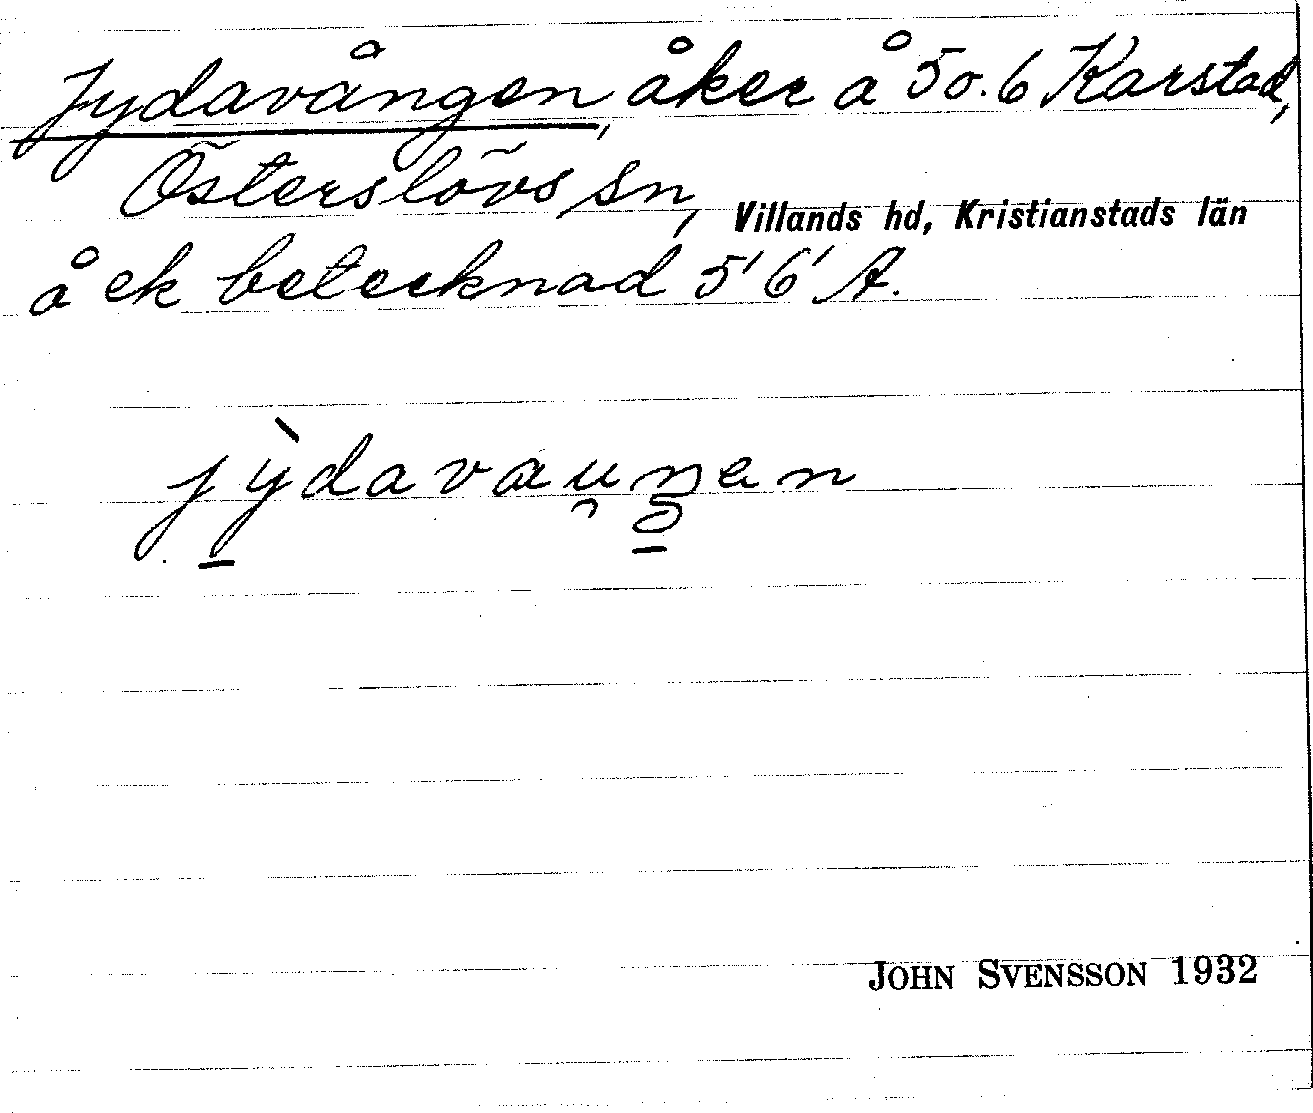 Jydavången, åker å 5 o. 6 Karstad,
Österslövs sn, Villands hd, Kristianstads län
å ek betecknad 5' 6' A.
jỳdavaunen
JOHN SVENSSON 1932